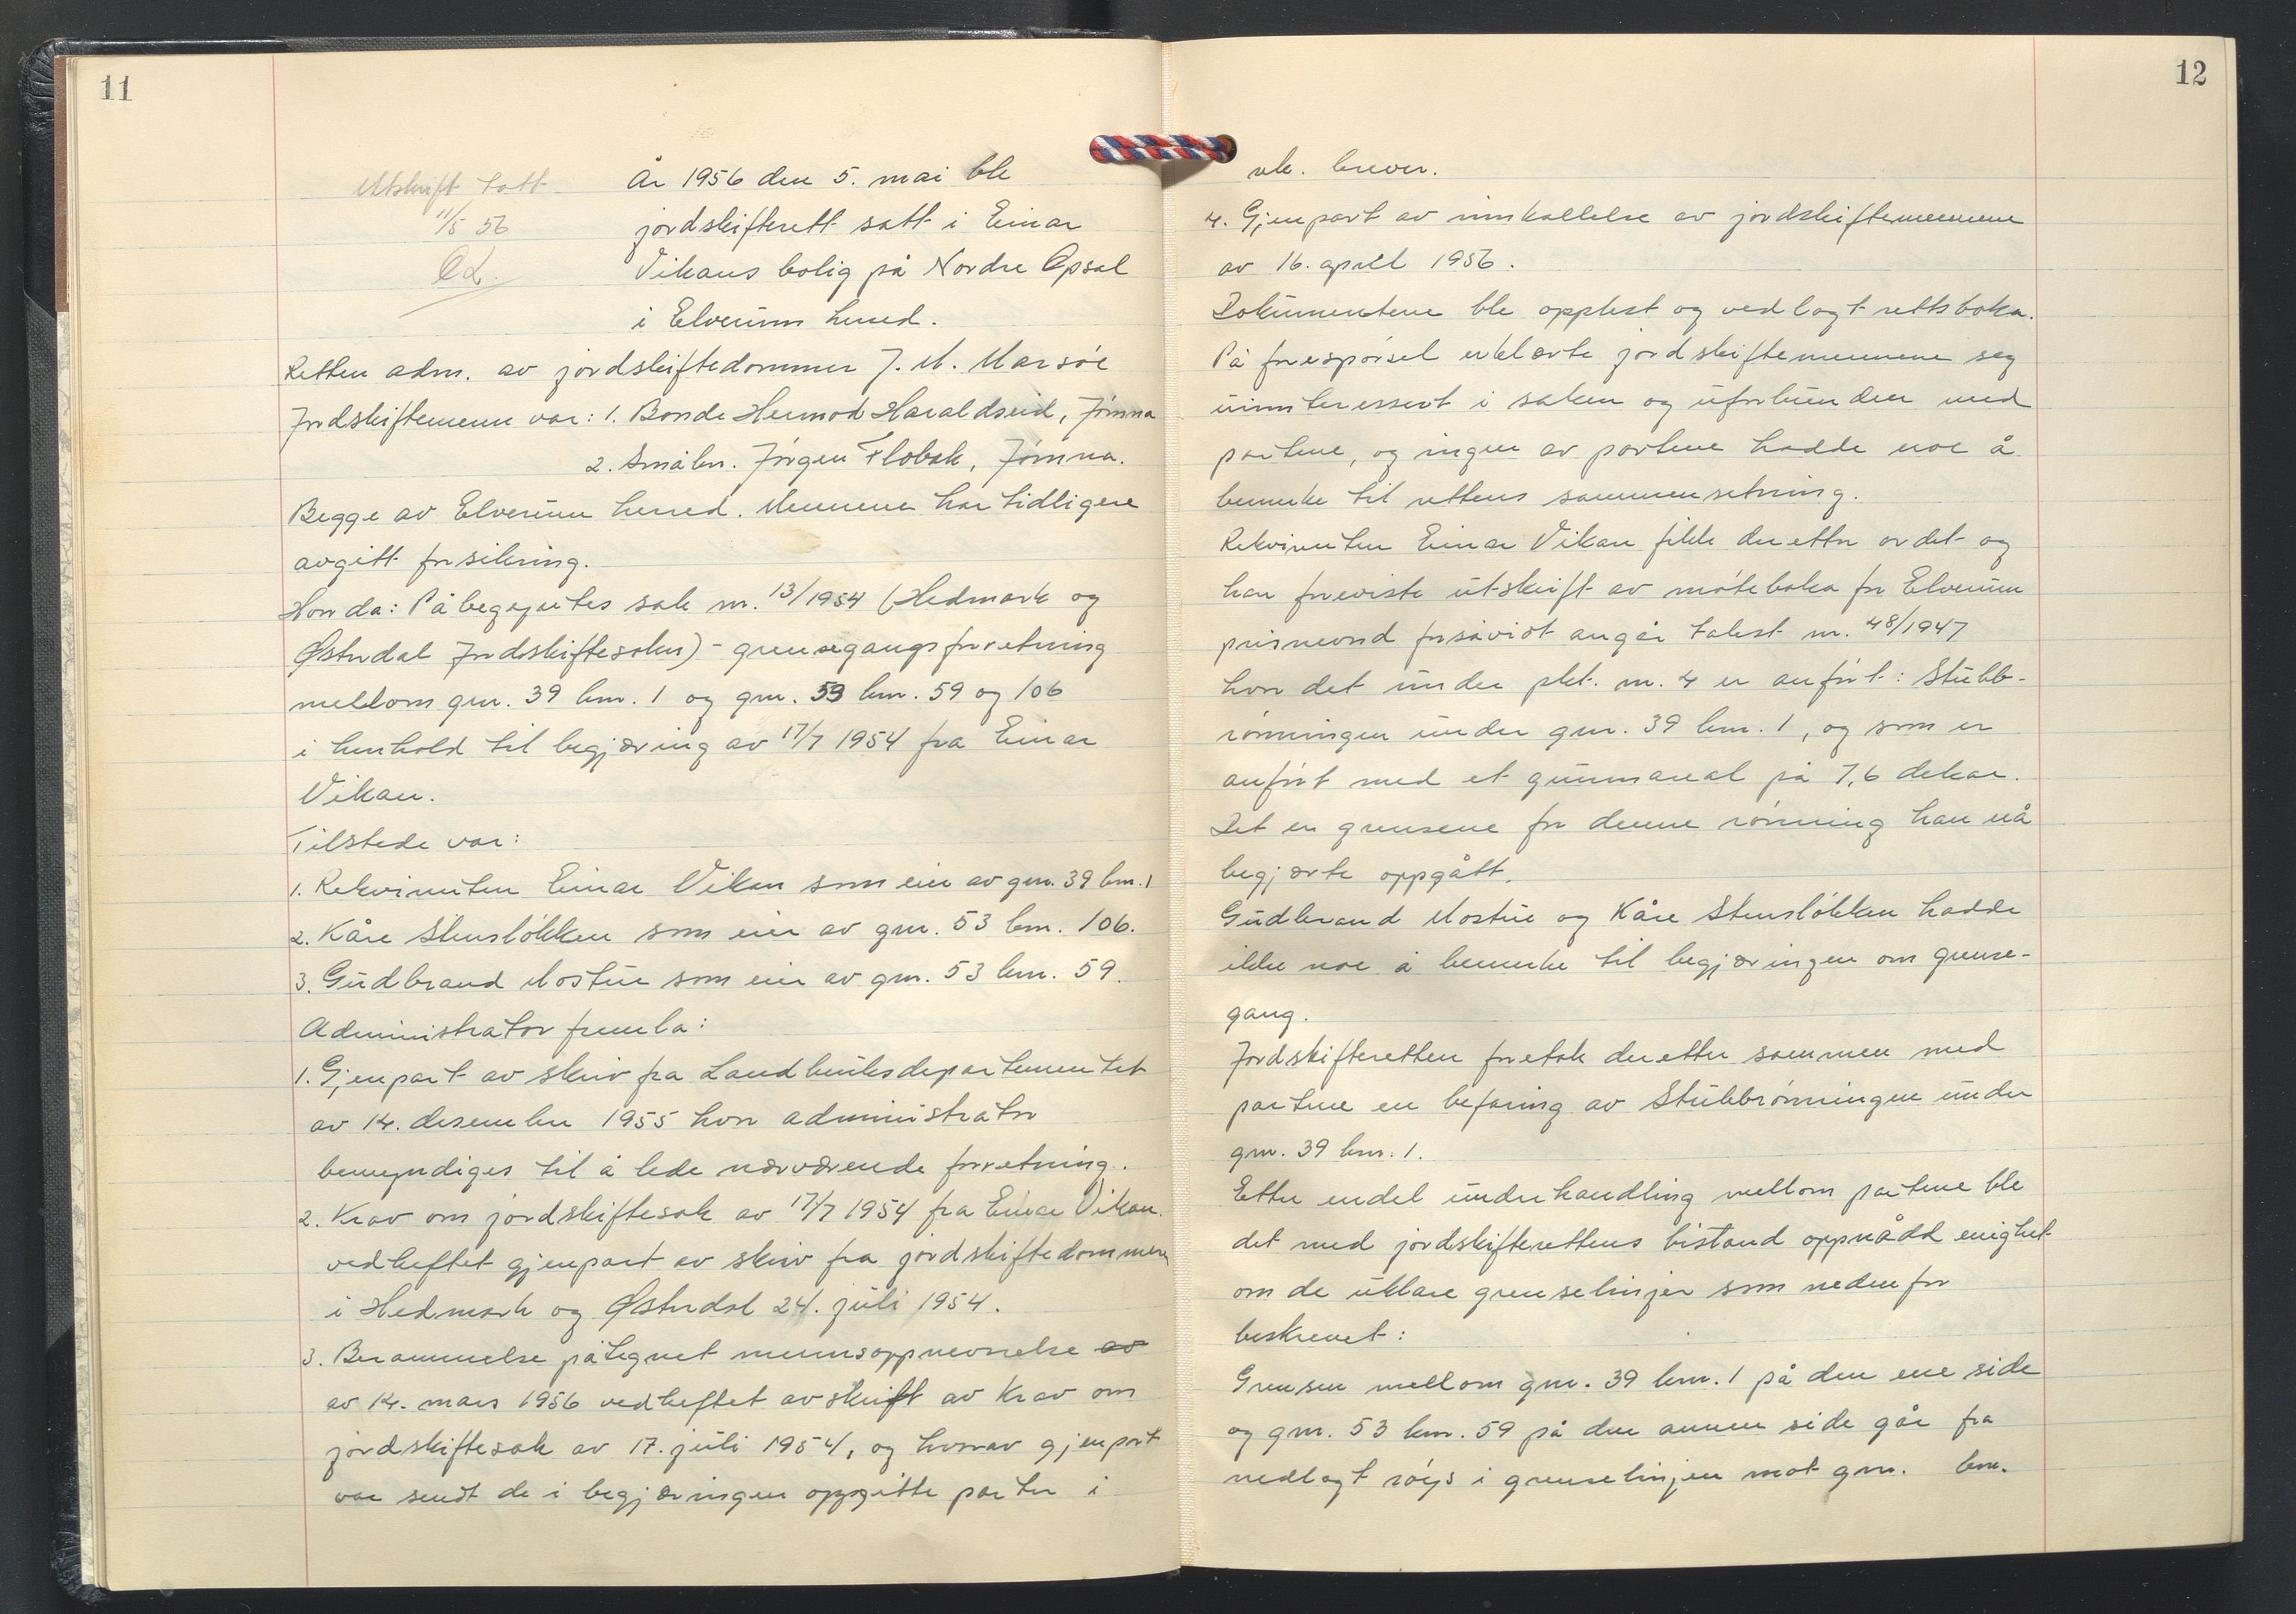 11
Utskrift tatt
11/5 56
År 1956 den 5. mai ble
jordskifterett satt i Einar
Vikans bolig på Nordre Opsal
i Elverum herred.
Retten adm. av jordskiftedommer J. M. Marsøe
Jordskiftemenn var: 1. Bonde Hermod Haraldseid, Jømna
2. Småbr. Jørgen Flobak, Jømna.
Begge av Elverum herred. Mennene har tidligere
avgitt forsikring.
Hvor da: Påbegyntes sak nr. 13/1954 (Hedmark og
Østerdal Jordskiftesokn) - grensegangsforretning
mellom gnr. 39 bnr. 1 og gnr. 53 bnr. 59 og 106
i henhold til begjæring av 17/7 1954 fra Einar
Vikan.
Tilstede var:
1. Rekvirenten Einar Vikan som eier av gnr. 39 bnr. 1
2. Kåre Stensløkken som eier av gnr. 53 bnr. 106.
3. Gudbrand Mostue som eier av gnr. 53 bnr. 59.
Administrator fremla:
1. Gjenpart av skriv fra Landbruksdepartementet
av 14. desember 1955 hvor administrator
bemyndiges til å lede nærværende forretning.
2. Krav om jordskiftesak av 17/7 1954 fra Einar Vikan.
vedheftet gjenpart av skriv fra jordskiftedommeren
i Hedmark og Østerdal 24. juli 1954.
3. Berammelse påtegnet mennsoppnevnelse av
av 14. mars 1956 vedheftet avskrift av krav om
jordskiftesak av 17. juli 1954, og hvorav gjenpart
var sendt de i begjæringen oppgitte parter i
12
rek. brever.
4. Gjenpart av innkallelse av jordskiftemennene
av 16. april 1956.
Dokumentene ble opplest og vedlagt rettsboka.
På forespørsel erklærte jordskiftemennene seg
uinteressert i saken og uforbunden med
partene, og ingen av partene hadde noe å
bemerke til rettens sammensetning.
Rekvirenten Einar Vikan fikk deretter ordet og
han foreviste utskrift av møteboka for Elverum
prisnevnd forsåvidt angår takst nr. 48/1947
hvor det under pkt. nr. 4 er anført: Stubb-
rønningen under gnr. 39 bnr. 1, og som er
anført med et grunnareal på 7,6 dekar.
Det er grensene for denne rønning han nå
begjærte oppgått.
Gudbrand Mostue og Kåre Stensløkken hadde
ikke noe å bemerke til begjæringen om grense-
gang.
Jordskifteretten foretok deretter sammen med
partene en befaring av Stubbrønningen under
gnr. 39 bnr. 1.
Etter endel underhandling mellom partene ble
det med jordskifterettens bistand oppnådd enighet
om de uklare grenselinjer som nedenfor
beskrevet:
Grensen mellom gnr. 39 bnr. 1 på den ene side
og gnr. 53 bnr. 59 på den annen side går fra
nedlagt røys i grenselinjen mot gnr. bnr.